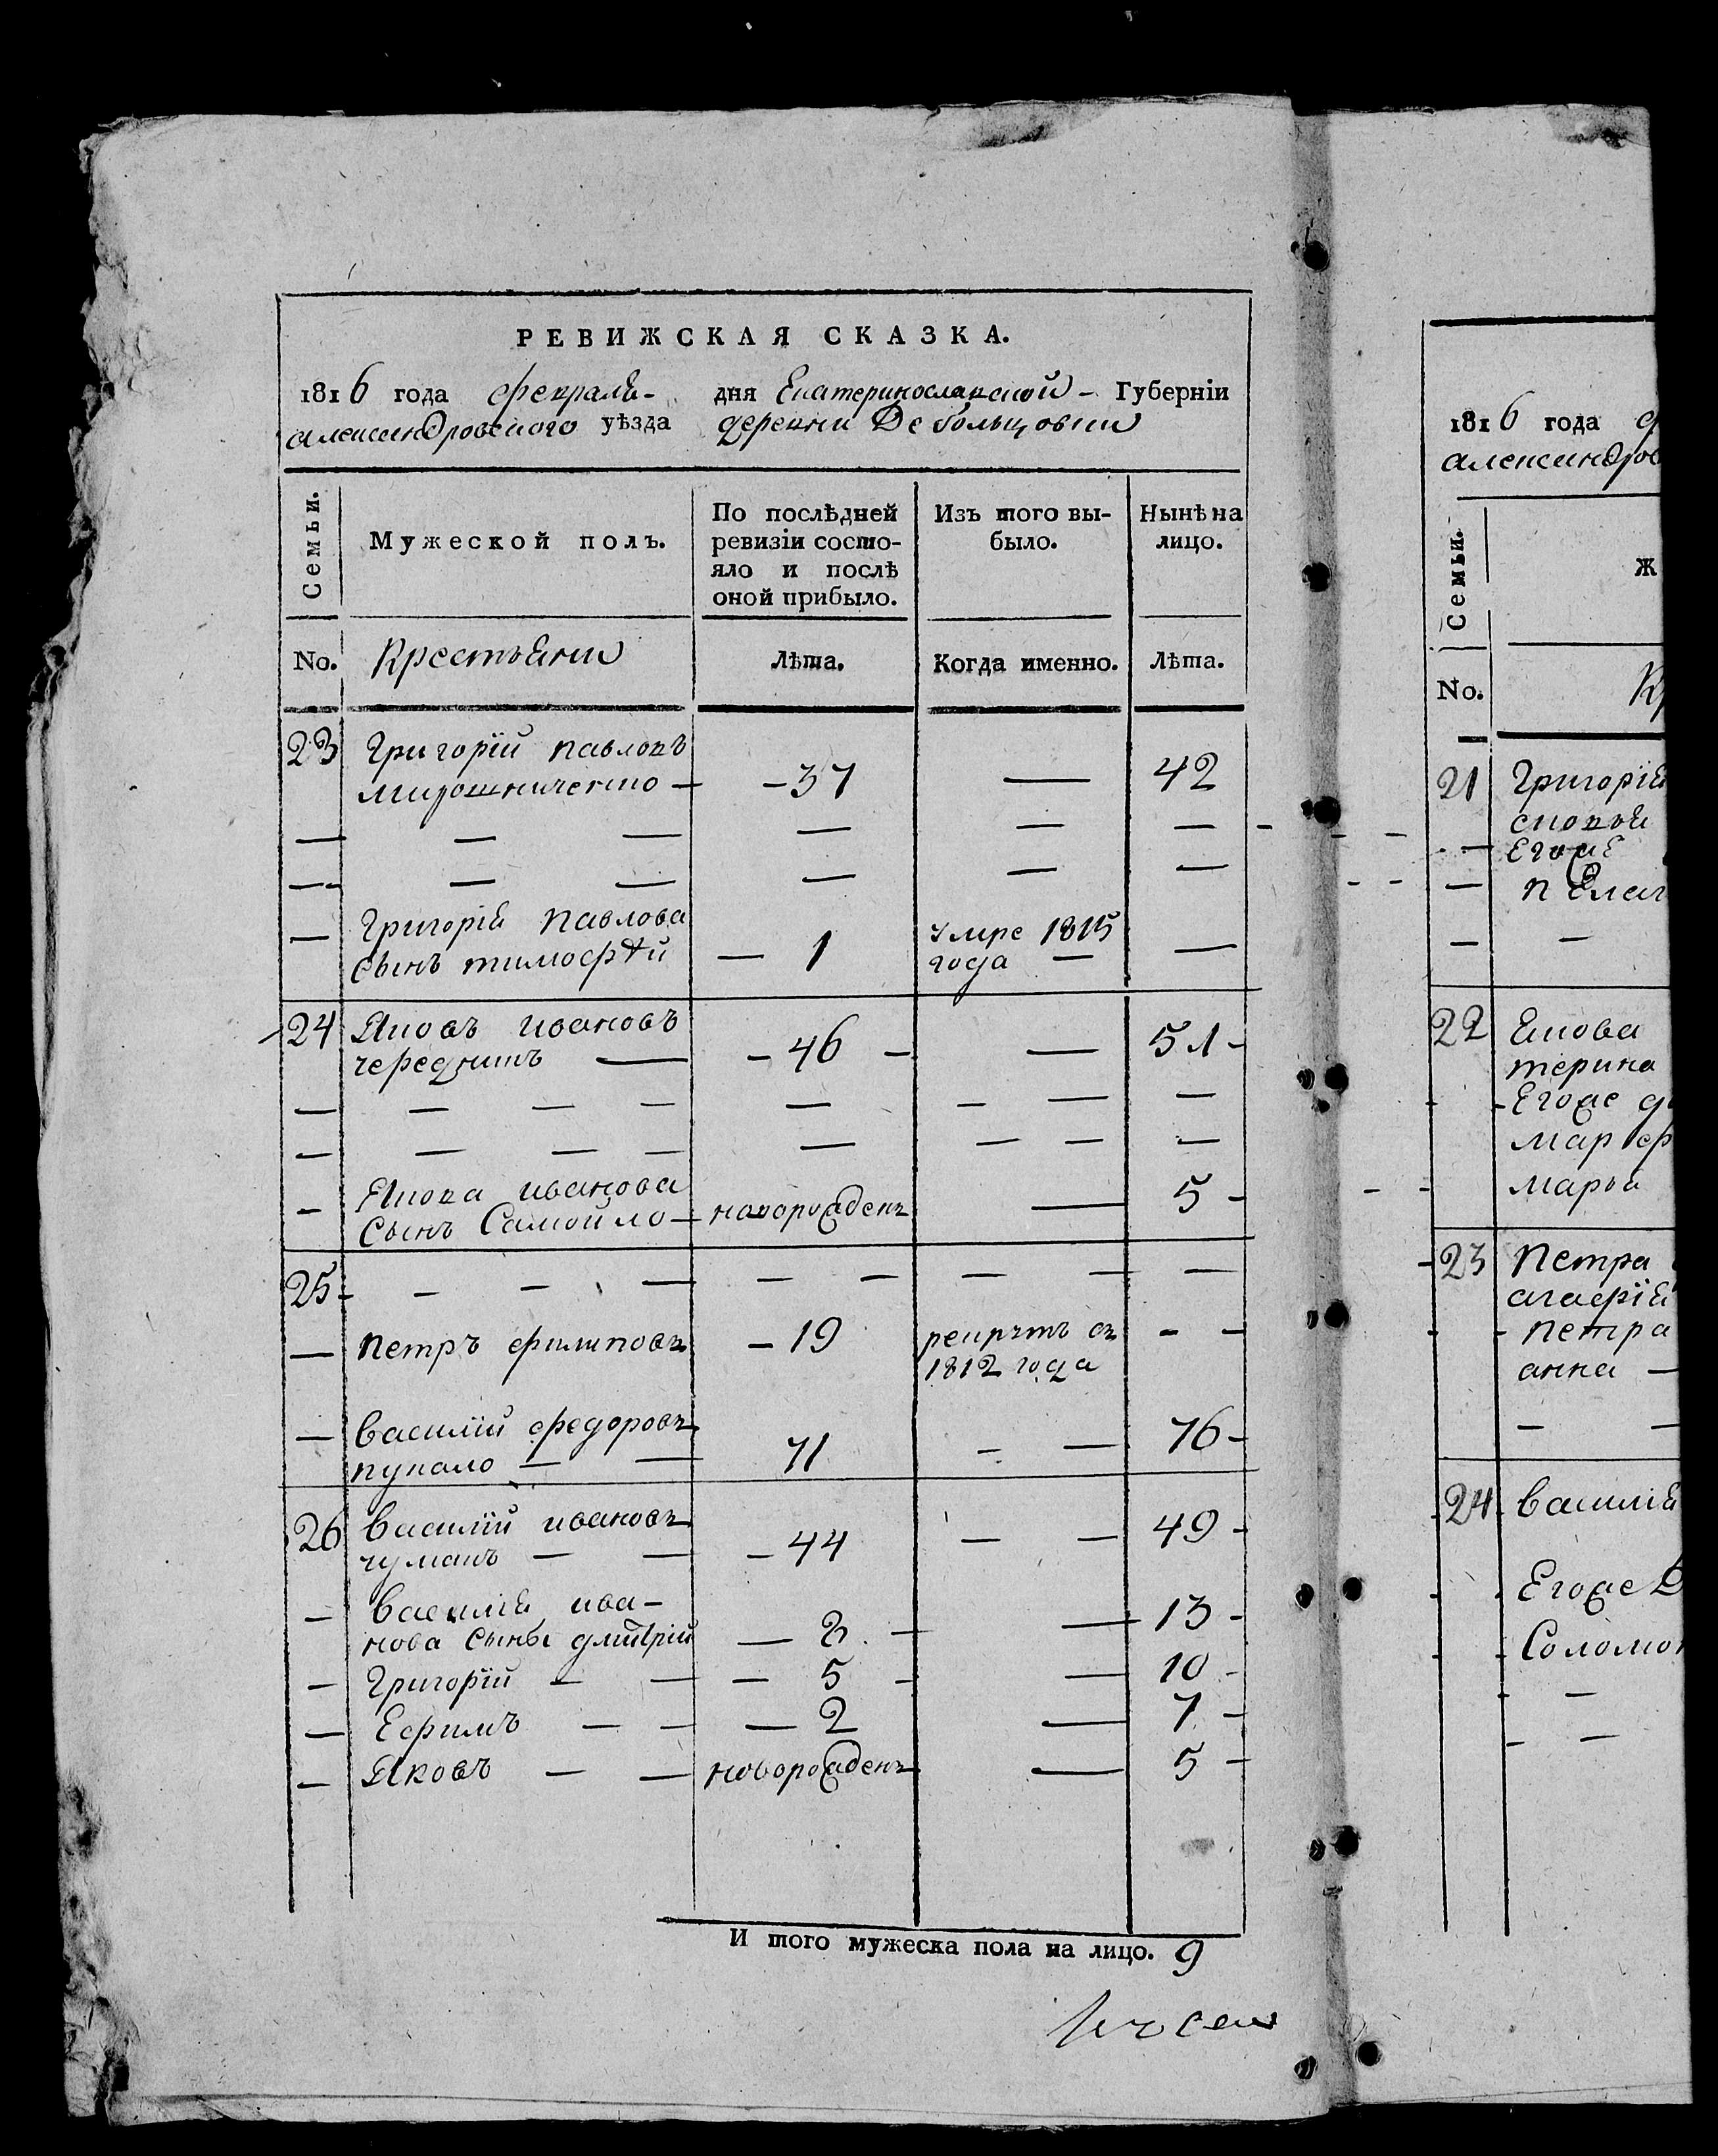 РЕВИЖСКАЯ СКАЗКА.
1816 года февраля - дня Екатеринославской - Губерніи
александровского уѣзда деревни
Семьи.
Мужеской полъ.
По послѣдней ревизіи состо-
яло и послѣ оной прибыло.
Изъ того вы-
было.
Нынѣ на
лицо.
No. Крестьяни Лѣта. Когда именно. Лѣта.
23 Григорїй павловъ
мирошниченко — - 37 — 42
— — — — — —
— — — — — —
— Григорїй павлова умре 1815
сынъ тимофѣй — 1 года — —
24 Яковъ ивановъ
чередникъ — - 46 - — 51 -
— — — — — - — —
— — — — — — — —
- Якова иванова
сынъ Самойло — новорожденъ — 5 -
25 - - - — — — — — —
— петръ филиповъ - 19 рекрутъ въ - -
1812 года
— василїй федоровъ
пукало — — 71 - — 76 -
26 василїй ивановъ
чумакъ — — - 44 — — 49 -
— василїя ива-
нова сыны дмитрїй — — — 13 -
— Григорїй — — — 5 - — 10 -
— Ефимъ — — — 2 — 7 -
— Яковъ — — новорожденъ — 5 -
И того мужеска пола на лицо. 9
1816 года
александров
Семьи.
Ж
No. Кр
21 Григорїя
Егоже
— —
22 Якова
терина
Егоже
марья
23 петра
агафїя
петра
анна —
— —
24 василїя
Егоже
Соломон
—
- —